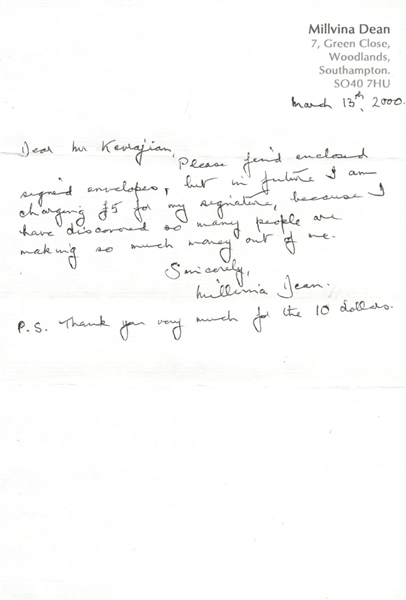 Millvina Dean
7, Green Close,
Woodlands,
Southampton.
SO40 7HU
March 13th, 2000.
Dear Mr
Please find enclosed
signed envelopes, but in future I am
charging £5 for my signature, because I
have discovered so many people are
making so much money out of me.
Sincerely,
Millvina Dean.
P.S. Thank you very much for the 10 dollars.